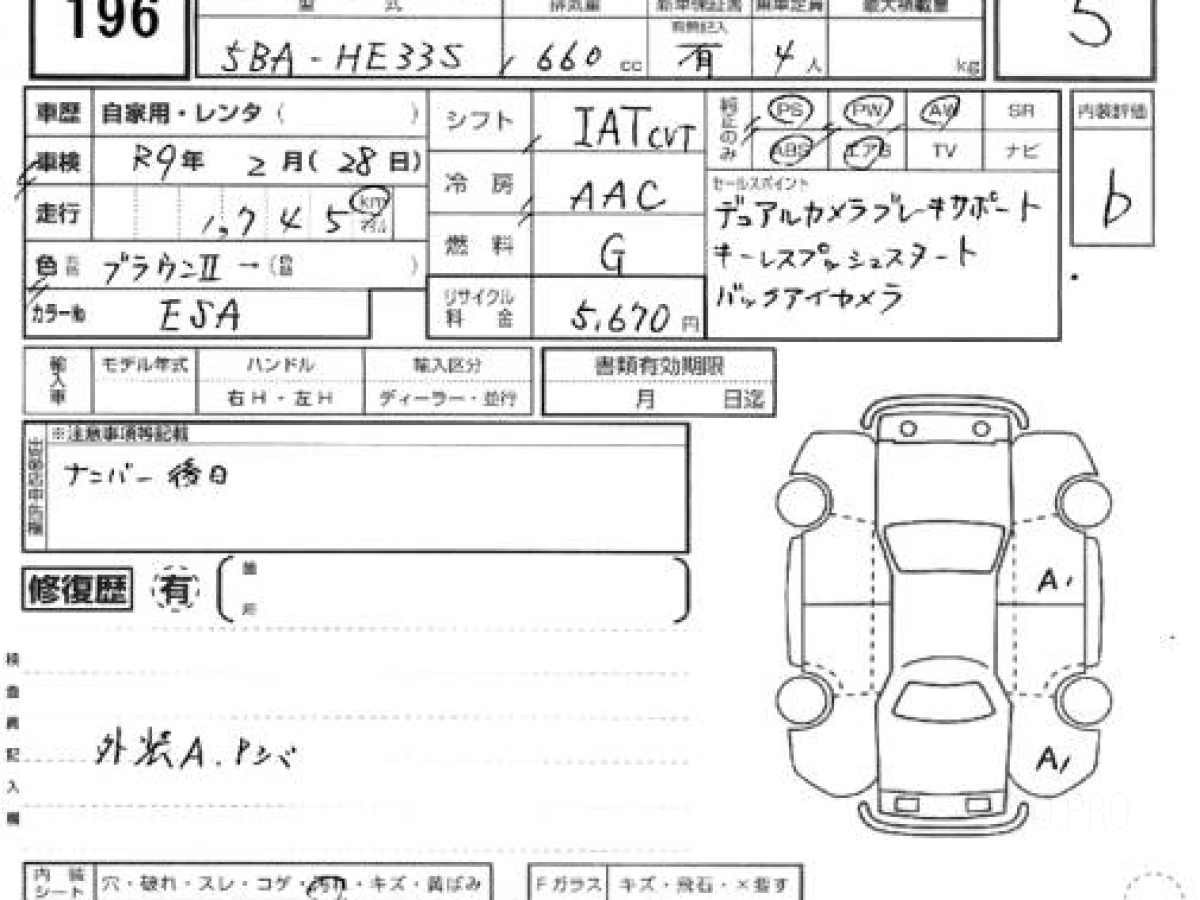 196
型 式 排気量 新車保証書 乗車定員 最大積載量
有無記入
5BA-HE33S 660 cc 有 4人 kg 5
車歴 自家用・レンタ ( )
車検 R9年 2月(28日)
走行 1,745 km マイル
色 ブラウンII → ( )
カラーNo ESA
シフト IAT CVT
冷房 AAC
燃料 G
リサイクル料金 5,670円
純正のみ PS PW AW SR
ABS エアB TV ナビ
セールスポイント
デュアルカメラブレーキサポート
キーレスプッシュスタート
バックアイカメラ
内装評価
b
輸入車 モデル年式 ハンドル 輸入区分
右H・左H ディーラー・並行
書類有効期限
月 日迄
※注意事項等記載
ナンバー後日
修復歴 有
検査員記入欄
外装A.Pシバ
A1
A1
J.PRO
内装シート 穴・破れ・スレ・コゲ・汚れ・キズ・黄ばみ
Fガラス キズ・飛石・×指す